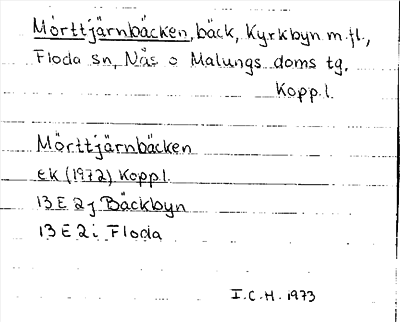 Mörttjärnbäcken, bäck, Kyrkbyn m.fl.,
Floda sn, Nås o Malungs doms tg,
Kopp.l.
Mörttjärnbäcken
ek (1972) Koppl.
13 E 2j Bäckbyn
13 E 2i Floda
I.C.H. 1973